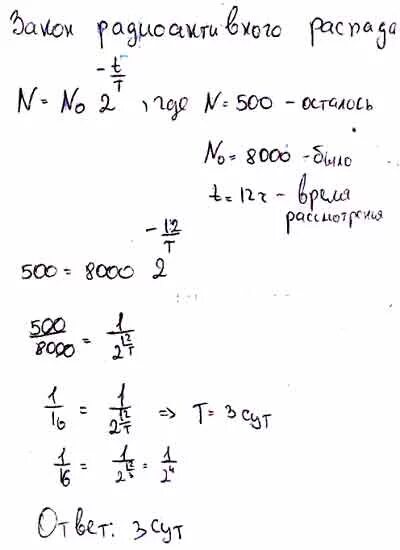 Закон радиоактивного распада
N = N₀ 2^(-t/T), где N = 500 - осталось
N₀ = 8000 - было
t = 12ч - время
рассмотрения
500 = 8000 2^(-12/T)
500/8000 = 1/2^(12/T)
1/16 = 1/2^(12/T) => T = 3 сут
1/16 = 1/2^(12/3) = 1/2^4
Ответ: 3 сут